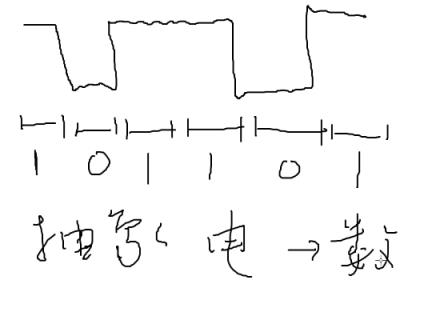 1 0 1 1 0 1
抽写 电 → 数